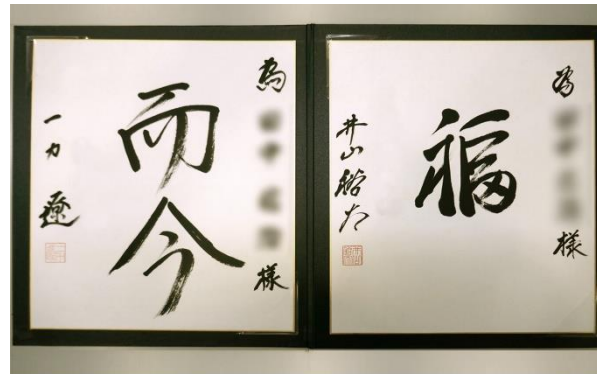 為 様
而今
一力遼
為 様
福
井山裕太